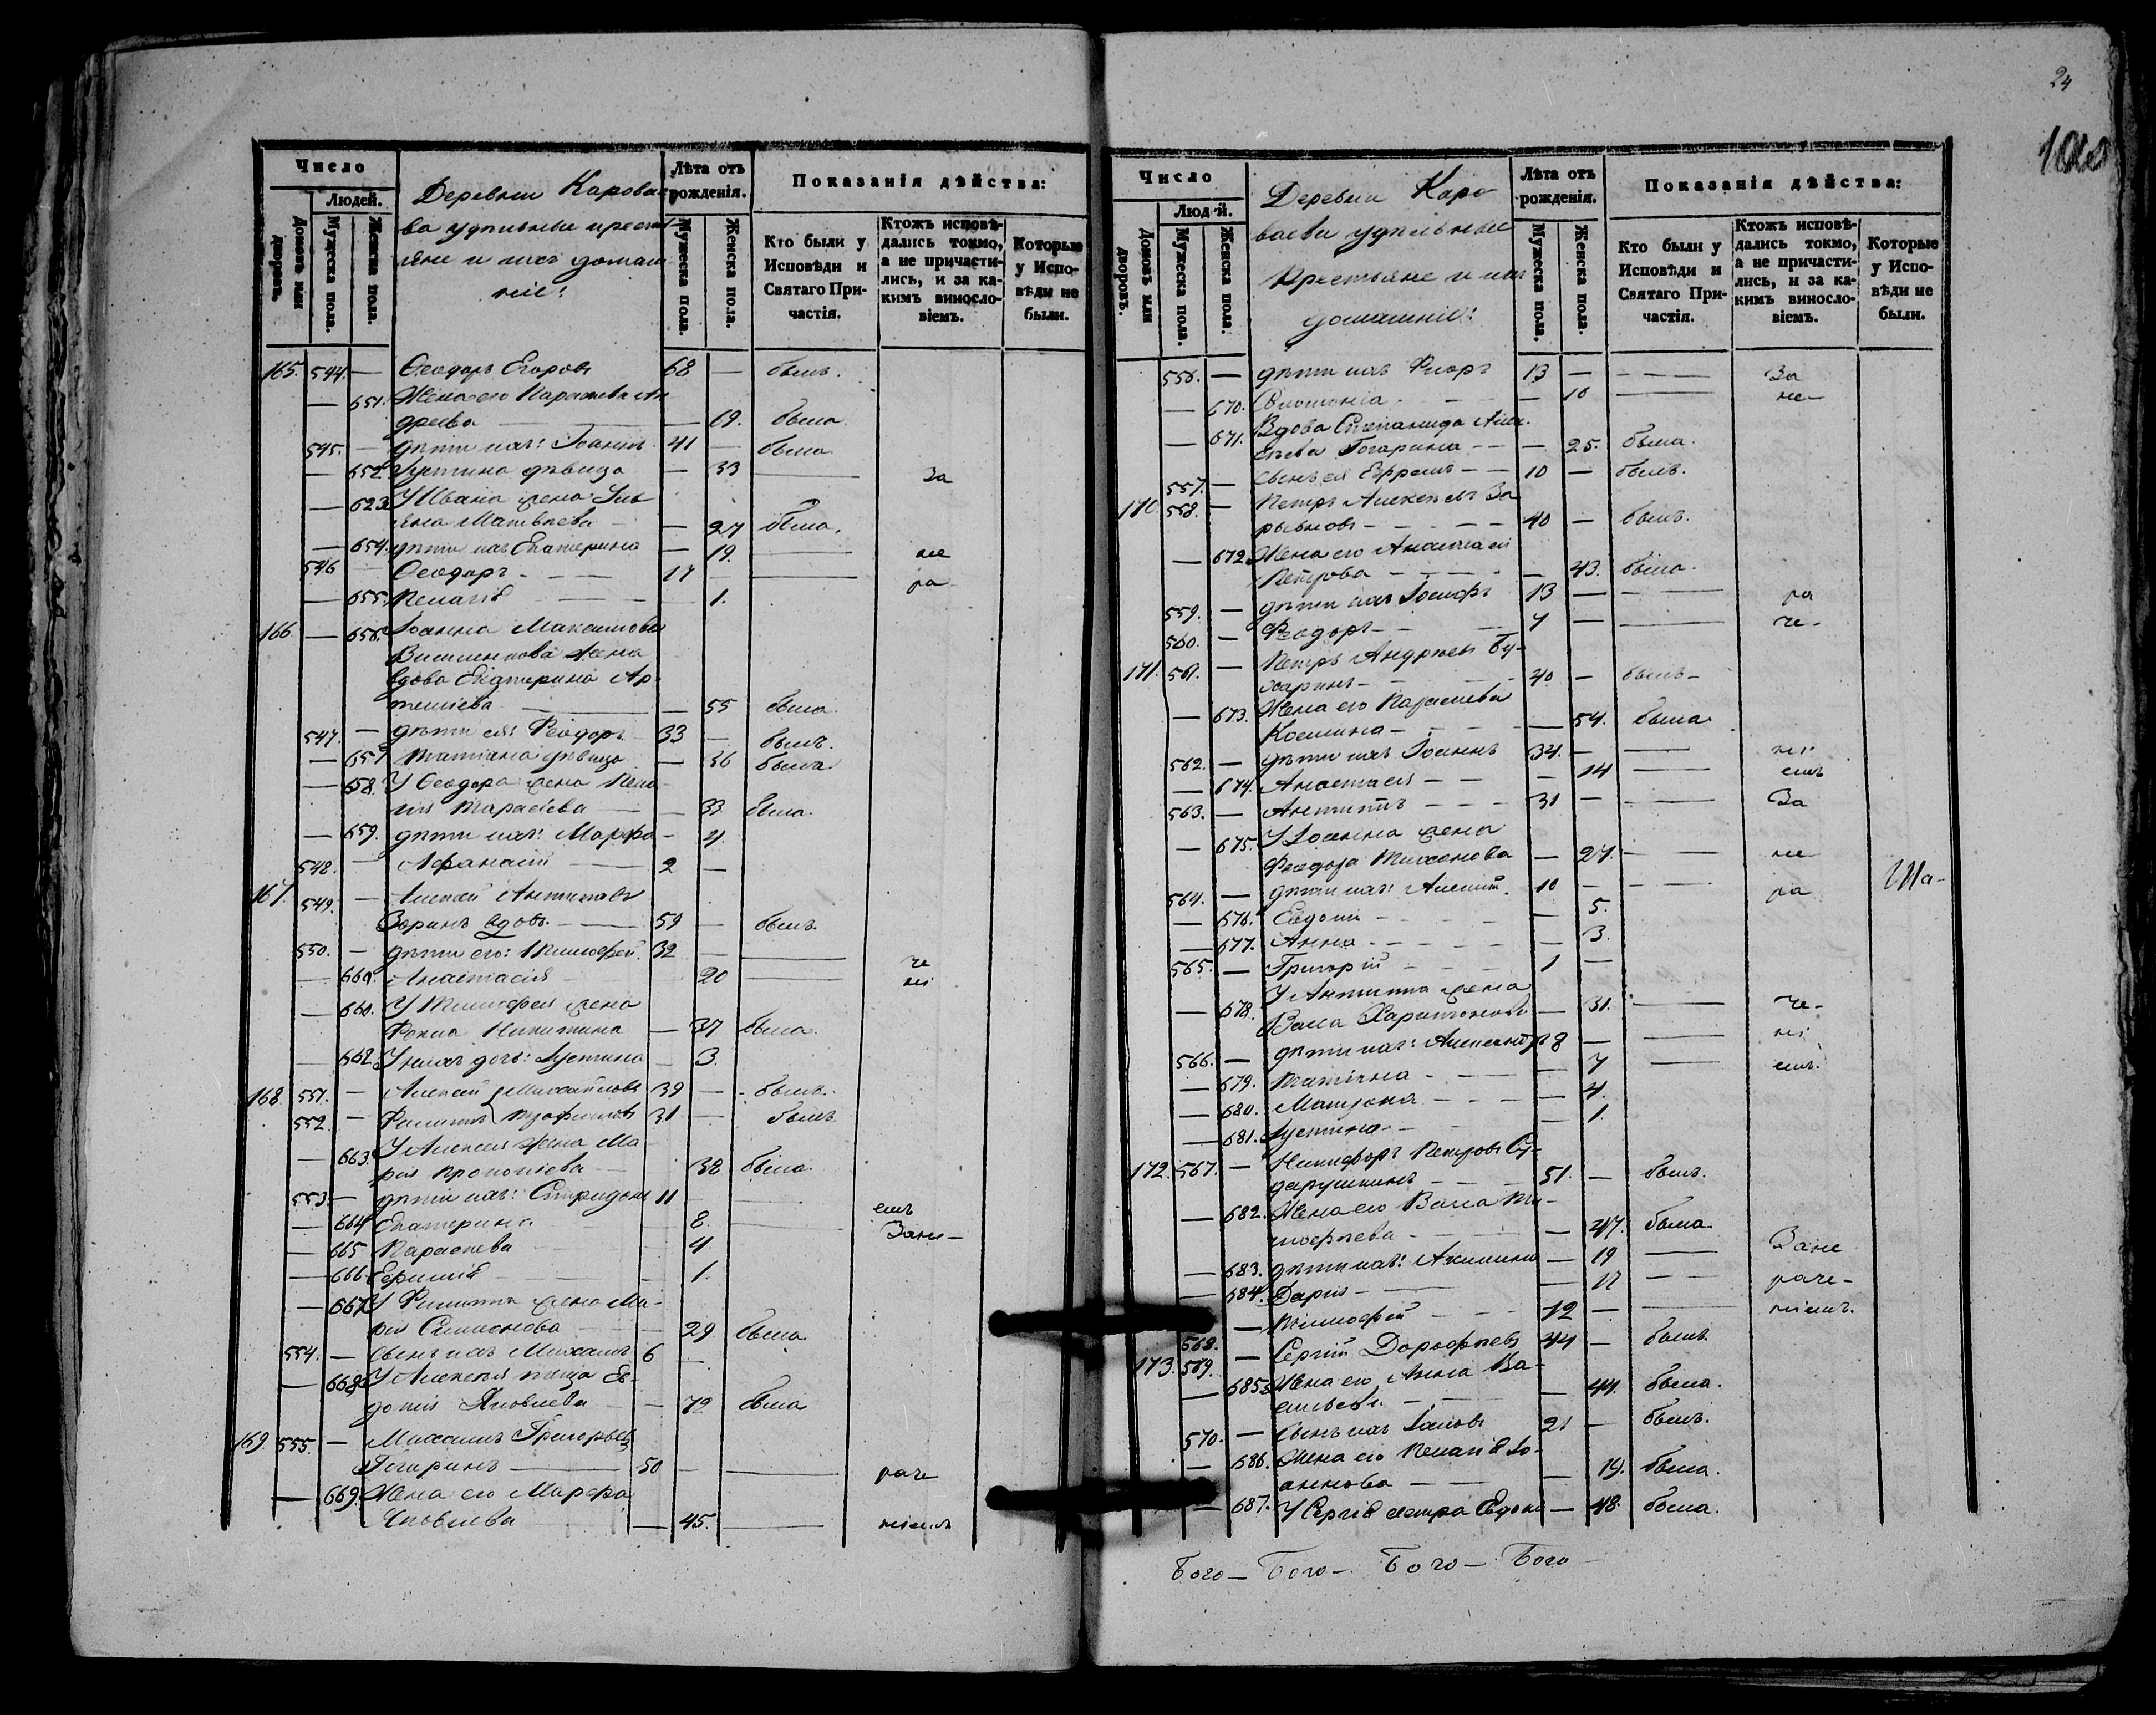 24
100
Число
Людей.
Домовъ или дворовъ.
Мужеска пола.
Женска пола.
Деревни Карова-
ва удѣльные кресть-
яне и ихъ домаш-
ніе:
Лѣта отъ рожденія.
Мужеска пола.
Женска пола.
Показанія дѣйства:
Кто были у Исповѣди и Святаго При-частія.
Ктожъ исповѣ-дались токмо, а не причасти-лись, и за ка-кимъ виносло-віемъ.
Которые у Испо-вѣди не были.
165. 544. — Ѳеодоръ Егоровъ 68 — былъ.
— 651. Жена его Параскева Ан-
дреева — 69. была.
545. — дѣти ихъ: Іоаннъ 41 — была
— 652. Устина дѣвица — 33 — за
— 623. У Ивана жена Улья-
яна Матвѣева — 27 была.
— 654. дѣти ихъ Екатерина — 19. — не
546 — Ѳеодоръ — 17 — ра
— 655. Пелагія — 1.
166 — 656. Іоанна Максимова
жена
вдова Екатерина Ар-
теміева — 55 была.
547. — дѣти ея: Ѳеодоръ 33 — былъ.
— 657 Татіана дѣвица — 36 была
— 658. У Ѳеодора жена Пела-
гія Тарасіева — 33 была.
— 659. дѣти ихъ: Марфа — 4.
548. — Афанасій 2 —
167. 549. — Алексей Антиповъ
Зоринъ вдовъ. — 59 — былъ.
550. — дѣти его: Тимофей. 32 — че
— 660. Анастасія 20 — ні
— 660. У Тимофея жена
Фекла Никитина — 37 была.
— 662. У нихъ дочь: Устина — 3.
168 551. — Алексей Михайловъ 39 — былъ.
552. — Филиппъ Трофимовъ 31 — былъ
— 663. У Алексея жена Ма-
рія Прокопіева — 38 была.
553. — дѣти ихъ: Спиридонъ 11 — емъ
— 664 Екатерина 8. — Зане —
— 665 Параскева 4.
— 666. Ефимія — 1.
— 667. У Филиппа жена Ма-
рія Симонова — 29 была
554. — Сынъ ихъ Михаилъ 6 —
— 668. У Алексея теща Ев-
докія Яковлева — 72 была
169 555. — Михаилъ Григорьевъ
Гагаринъ — 50 — раче
— 669. Жена его Марфа
Яковлева — 45. — ніемъ
Число
Людей.
Домовъ или дворовъ.
Мужеска пола.
Женска пола.
Деревни Каро-
ваева удѣльные
Крестьяне и ихъ
домашніе:
Лѣта отъ рожденія.
Мужеска пола.
Женска пола.
Показанія дѣйства:
Кто были у Исповѣди и Святаго При-частія.
Ктожъ исповѣ-дались токмо, а не причасти-лись, и за ка-кимъ виносло-віемъ.
Которые у Испо-вѣди не были.
556. — дѣти ихъ Флоръ 13 — За
— 670. — 16 — не —
— 671. Вдова Степанида Алек-
сѣева Гагарина — 25. была.
557. — Сынъ ея Ефремъ — 10 — былъ.
170 558. — Петръ Алексѣевъ За-
рывновъ — 40 — былъ.
— 672. Жена его Анастасія
Петрова — 43. была.
559. — дѣти ихъ Іосифъ 13 — ра
560. — Ѳеодоръ — 7 — че —
171. 561. — Петръ Андреевъ Бу-
харинъ — 40. — былъ —
— 673. Жена его Параскева
Козмина — 54. была.
562. — дѣти ихъ Іоаннъ 34. — ні
— 674. Анастасія — 14 — емъ
563. — Антипъ — 31 — За
— 675. У Іоанна жена
Феодора Тихонова — 27. — не
564. — дѣти ихъ: Алексій. 10 — ра
Ша —
— 676. Евдокія — 5.
— 677. Анна — 3.
565. — Григорій 1 —
— 678. У Антипа жена
Васса Харитонова — 31. — че —
566. — дѣти ихъ: Александръ 8 — ні
— 679. Татіана — 7 — емъ.
— 680. Матрона — 4.
— 681. Устина — 1.
172. 567. — Никифоръ Петровъ Су-
дарушкинъ — 51. — былъ.
— 682. Жена его Васса Ти-
мофѣева — 47. была.
— 683. дѣти ихъ: Акилина — 19 — Зане
— 684. Дарія — 17 — раче —
568. — Тимофей 12 — ніемъ.
173. 569. — Сергій Дорофѣевъ 44 — былъ.
— 685. Жена его Анна Ва-
сильева — 44. была.
570. — Сынъ ихъ Іаковъ 21 — былъ.
— 686. Жена его Пелагія Іо-
аннова — 19. была.
— 687. У Сергія сестра Евдокія — 48. была.
Бого — Бого — Бого — Бого